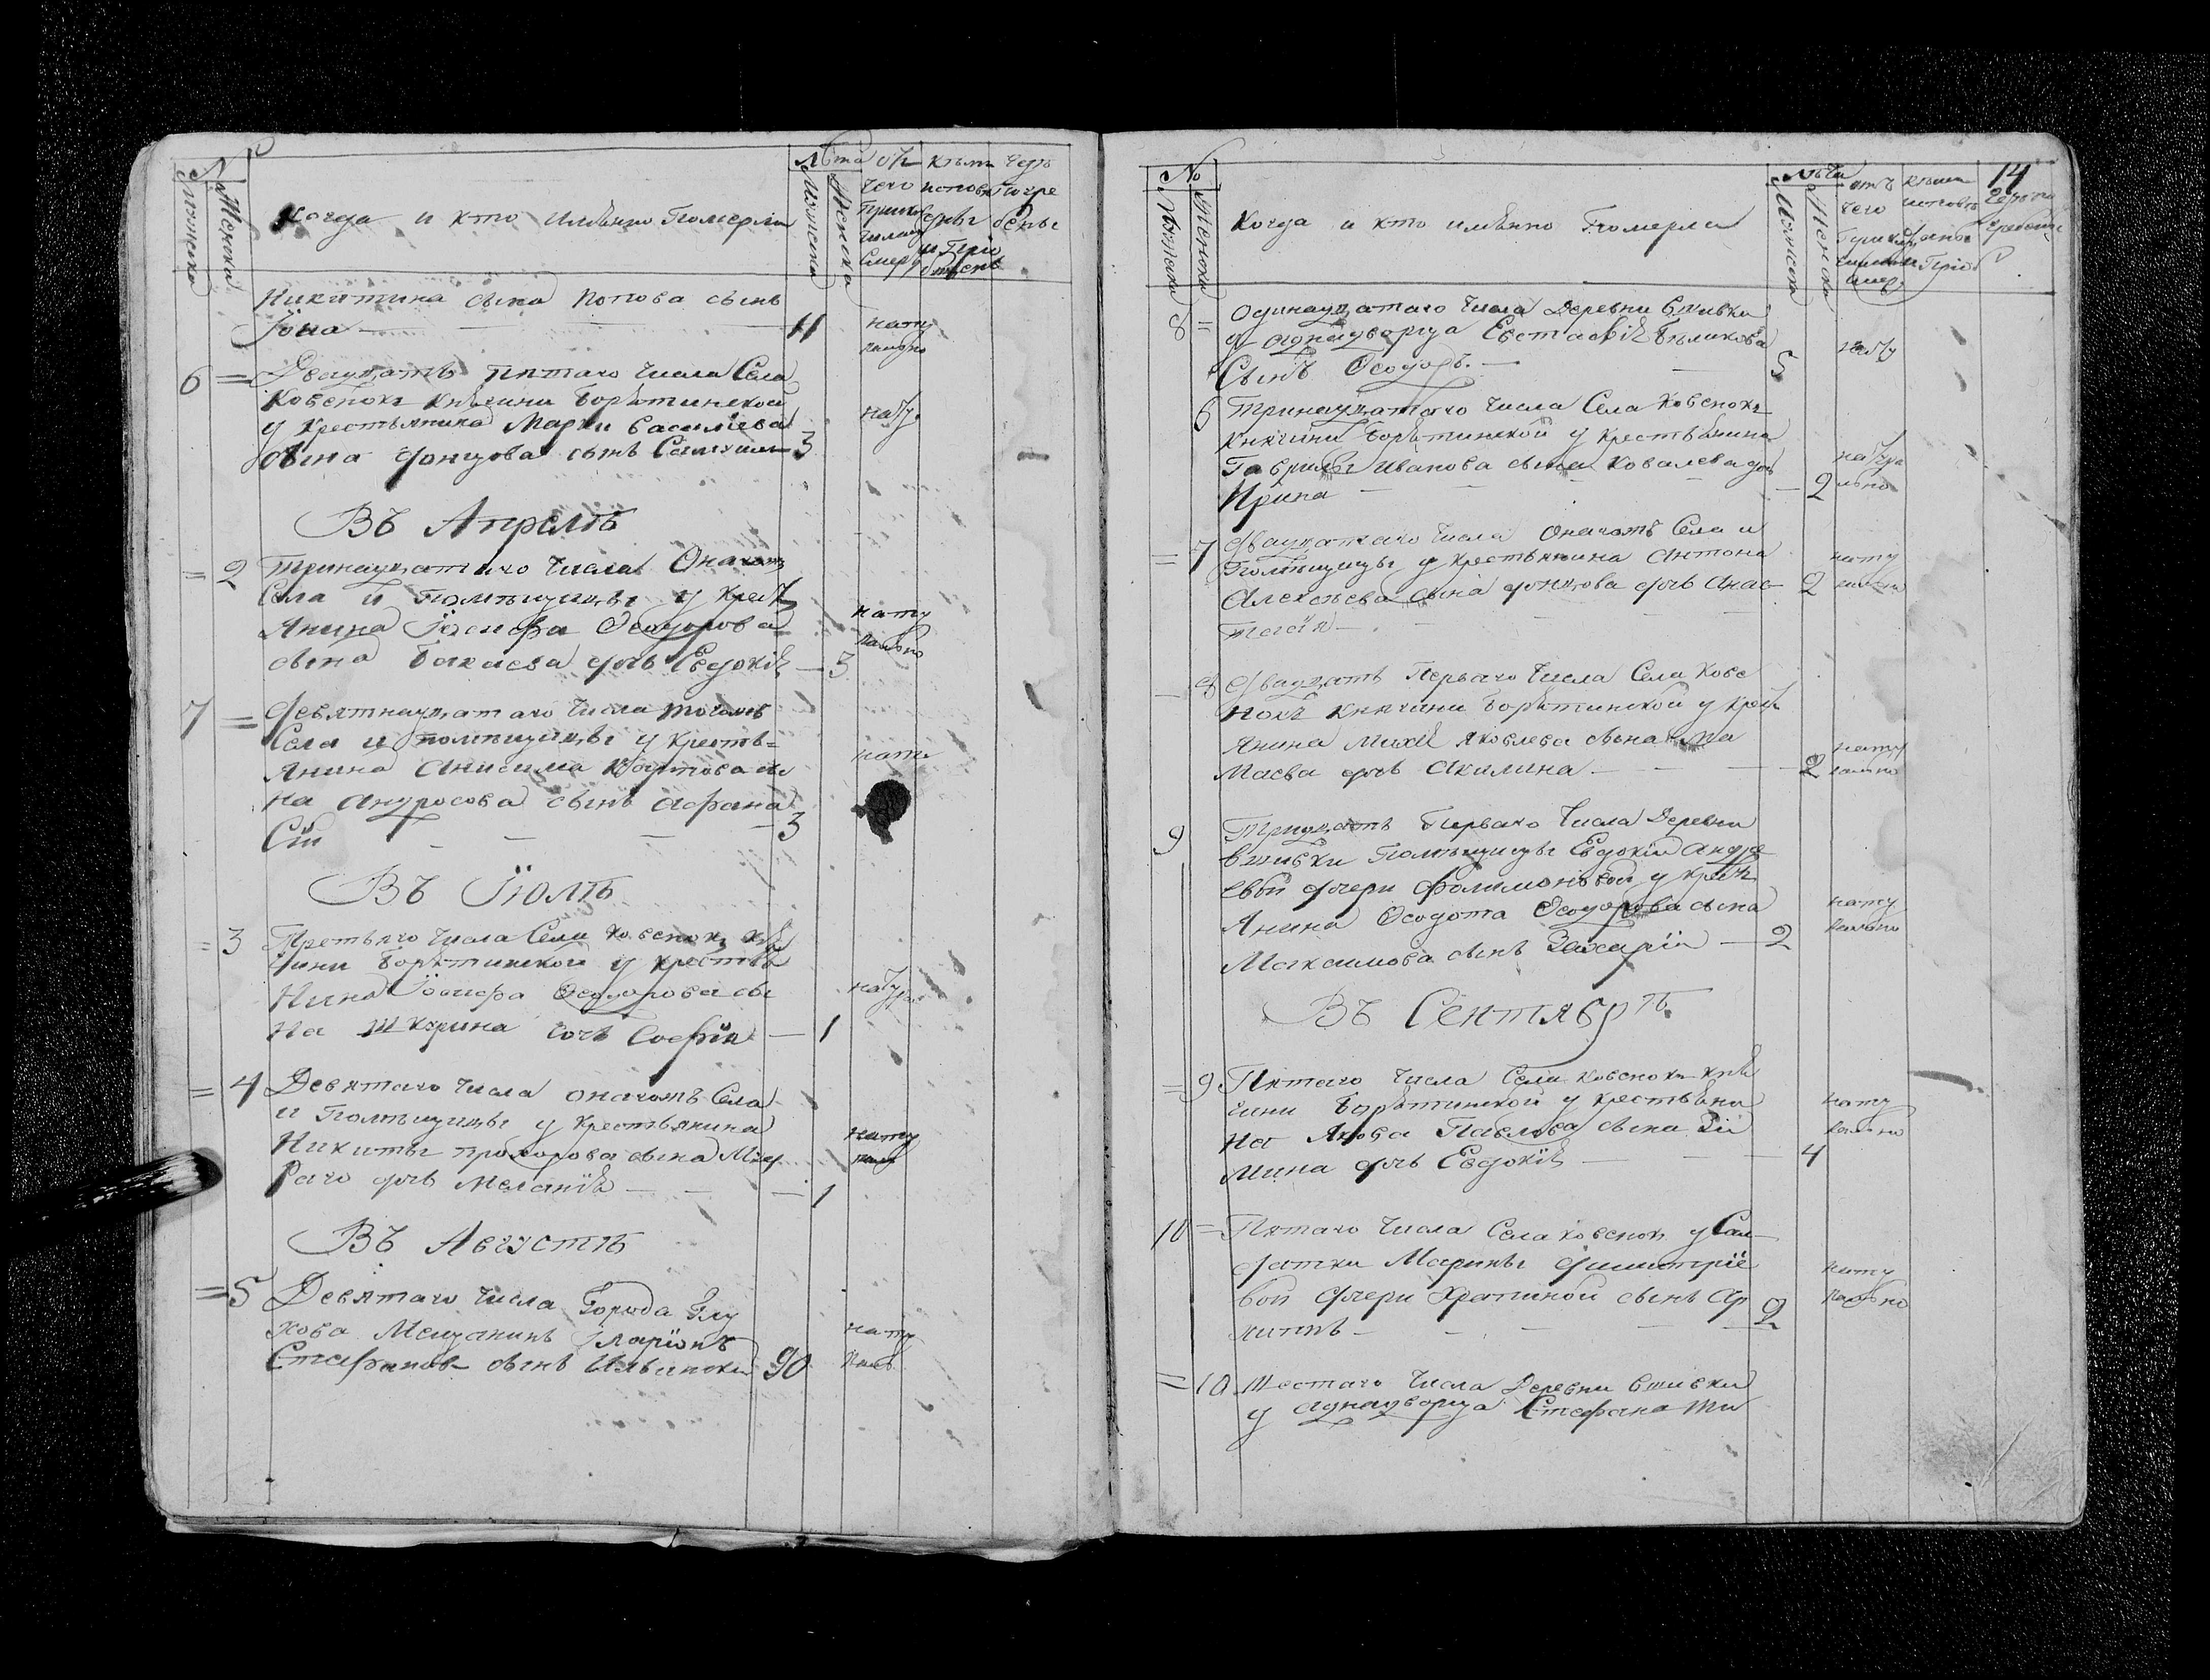 №
Мужеска
Женска
Когда и кто имѣнно Померли
Лѣта
Мужеска
Женска
отъ
чего
Приклю
чилась
Смерт
кѣмъ
исповѣ
даны
и Прі
общены
гдѣ
Погре
бены
Никитина сына Попова сынъ
Іона
11
нату
рално
6 =
Двадцать пятаго числа Села
Ковенокъ княгини Борятинской
у крестьянина Марки Василіева
сына Донцова сынъ Самуилъ
3
нату
Въ Апрелѣ
= 2
тринадцатаго числа Оначотъ
Села и помѣщицы у крест
янина Іосифа Ѳеодорова
сына Бакаева дочь Евдокіѣ
3
нату
рально
7 =
Девятнадцатаго числа тогожъ
Села и помѣщицы у кресть=
янина Анисима сы
на Андросова сынъ Афана
Сій
3
нату
Въ Іюлѣ
= 3
Третьяго числа Села Ковенокъ кня
гини Борятинской у крестья
нина Іосифа Ѳеодорова сы
на Шкурина дочь Софія
1
натура
= 4
Девятаго числа оначотъ Села
и Помѣщицы у крестьянина
Никиты прохорова сына Му
раго дочь Меланіѣ
1
нату
рал
Въ Августѣ
= 5
Девятаго числа Города Глу
хова Мещанинъ Іларіонъ
Стефановъ сынъ Ильински
90
нату
рал
14
№
Мужеска
Женска
Когда и кто имѣнно Померли
Лѣта
Мужеска
Женска
отъ
чего
Приклю
чилась
смер
кѣмъ
исповѣ
даны
Пріоб
Гдѣ по
гребены
8 =
Одинадцатаго числа Деревни Вшивки
у аднадворца Евстафіѣ Бѣликова
Сынъ Ѳеодоръ
5
нату
6
Тринадцатаго числа Села Ковенокъ
княгини Борятинской у крестьянина
Гаврилы Иванова сына Ковалева дочь
Ирина
2
натура
льно
= 7
Двадцатаго числа Оначотъ Села и
Помѣщицы у крестьянина Антона
Алексѣева сына Донцова дочь Анас
тасія
2
нату
рално
8
Двадцать Перваго числа Села Кове
нокъ княгини Борятинской у крест
янина Михаи Яковлева сына Ма
маева дочь Акилина
2
нату
рално
9
Тридцать Перваго числа Деревни
Вшивки Помѣщицы Евдокіи Андре
евой дочери Филимоновой у крест
янина Ѳеодота Ѳеодорова сына
Максимова сынъ Захарія
2
нату
рално
Въ Сентябрѣ
= 9
Пятаго числа Села Ковенокъ кня
гини Борятинской у крестьяни
на Якова Павлова сына Зи
мина дочь Евдокіѣ
4
нату
рално
10 =
Пятаго числа Села Ковенок у Сал
датки Марины Димитріе
вой Дочери Храпиной сынъ Ар
хипъ
2
нату
рально
= 10
Шестаго числа Деревни Вшивки
у аднадворца Стефана Ти